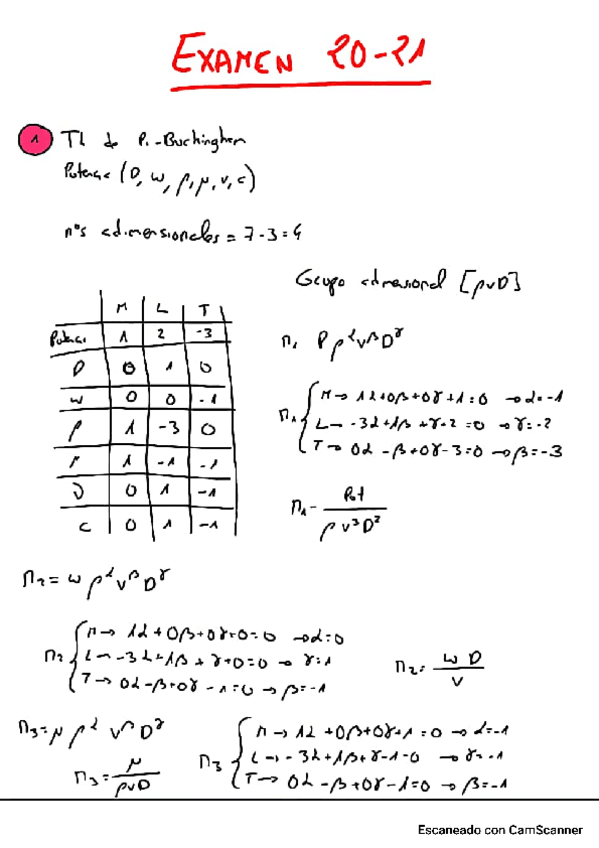 EXAMEN 20-21
1 TL de Pi-Buckingham
Potencia (D, ω, ρ, μ, v, c)
nºs adimensionales = 7-3=4
Grupo dimensional [ρvD]
M L T
Potencia 1 2 -3
D 0 1 0
ω 0 0 -1
ρ 1 -3 0
μ 1 -1 -1
v 0 1 -1
c 0 1 -1
Π₁ P ρ^α v^β D^γ
Π₁ { M → 1α+0β+0γ+1=0 → α=-1
L → -3α+1β+γ+2=0 → γ=-2
T → 0α-β+0γ-3=0 → β=-3
Π₁ - Pot / ρv³D²
Π₂ = ω ρ^α v^β D^γ
Π₂ { M → 1α+0β+0γ+0=0 → α=0
L → -3α+1β+γ+0=0 → γ=1
T → 0α-β+0γ-1=0 → β=-1
Π₂ = ωD / v
Π₃ = μ ρ^α v^β D^γ
Π₃ = μ / ρvD
Π₃ { M → 1α+0β+0γ+1=0 → α=-1
L → -3α+1β+γ-1=0 → γ=-1
T → 0α-β+0γ-1=0 → β=-1
Escaneado con CamScanner